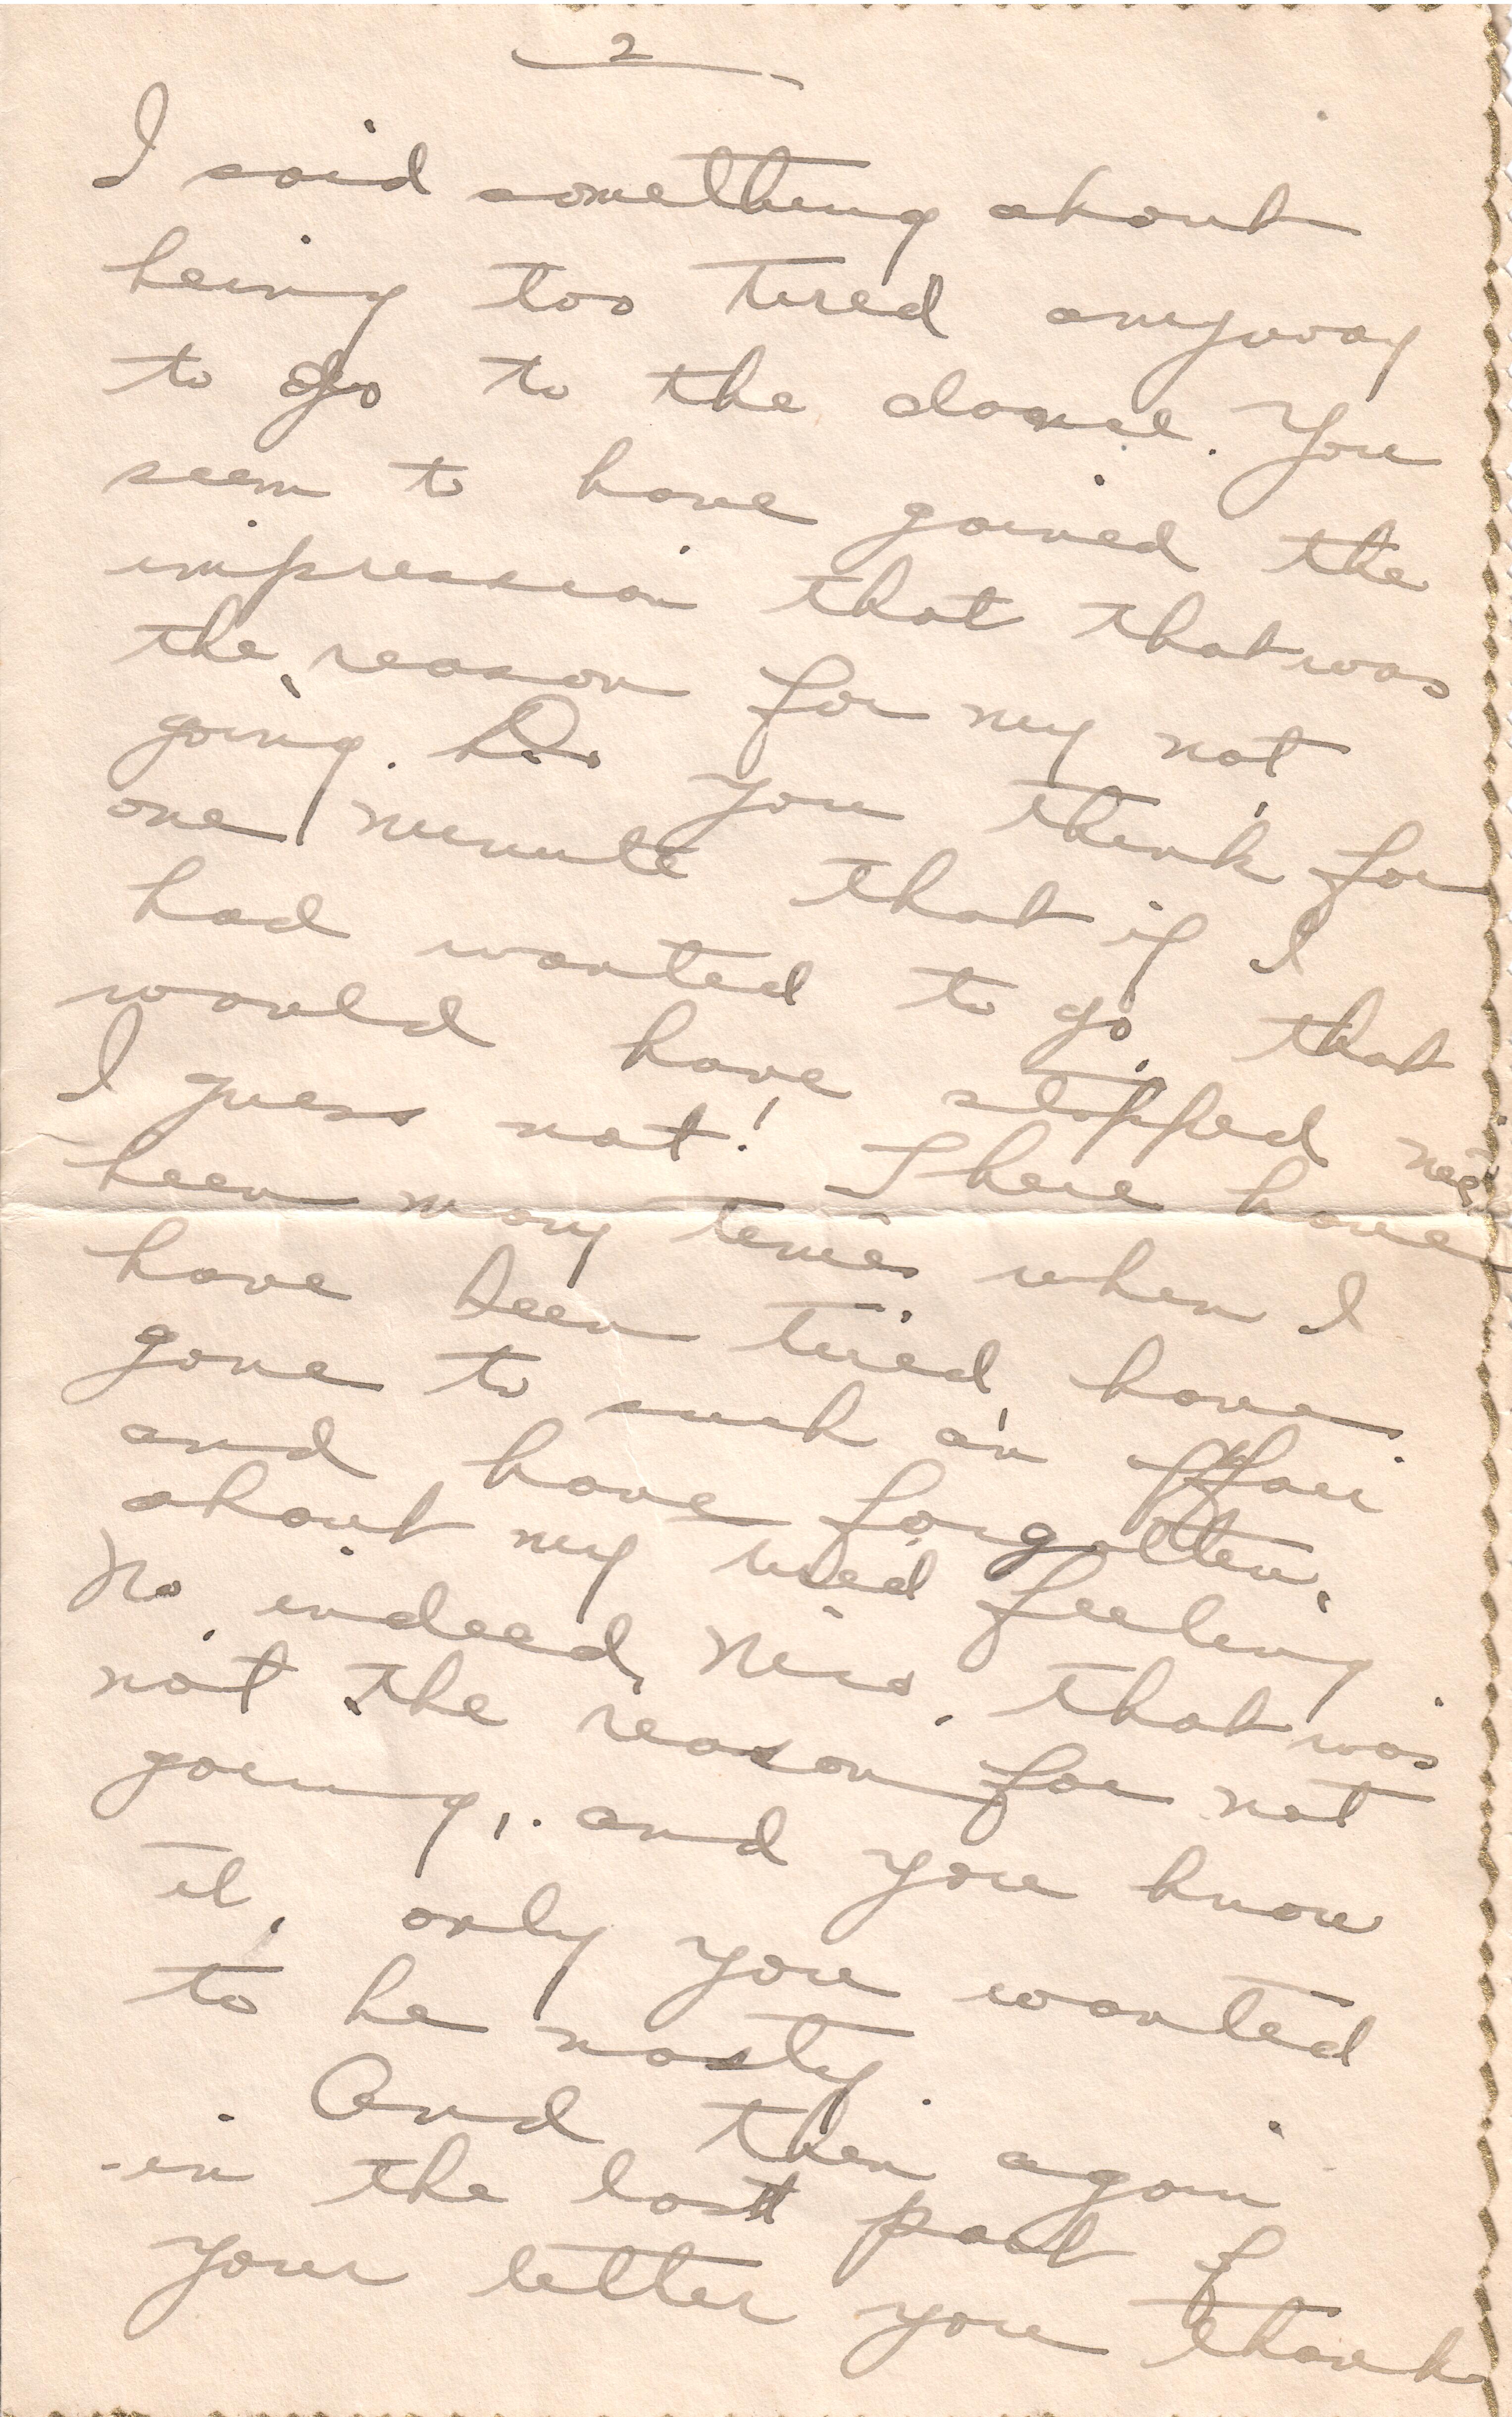 2
I said something about
being too tired anyway
to go to the dance. You
seem to have gained the
impression that that was
the reason for my not
going. Do you think for
one minute that if I
had wanted to go, that
would have stopped me?
I guess not! There have
been many times when I
have been tired, have
gone to such an affair
and have forgotten
about my tired feeling.
No indeed, that was
not the reason for not
going, and you know
it, only you wanted
to be nasty.
And then again
in the last part of
your letter you thank